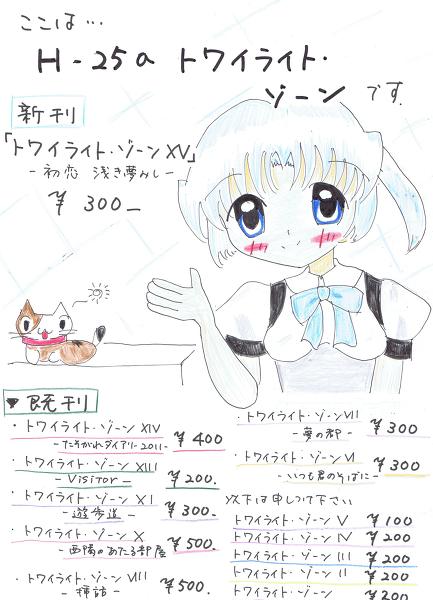 ここは…
H-25a トワイライト・
ゾーン です.
新刊
「トワイライト・ゾーン XV」
-初恋 浅き夢みし-
¥ 300-
▼既刊
・トワイライト・ゾーン XIV
-たそがれダイアリー2011- ¥400
・トワイライト・ゾーン XIII
-Visitor- ¥200.
・トワイライト・ゾーン XI
-遊歩道- ¥300-
・トワイライト・ゾーン X
-西陽のあたる部屋 ¥500-
・トワイライト・ゾーン VIII
-拝話- ¥500.
・トワイライト・ゾーン VII
-夢の都- ¥300
・トワイライト・ゾーン VI
-いつも君のそばに- ¥300
以下は申しつけて下さい
トワイライト・ゾーン V ¥100
トワイライト・ゾーン IV ¥200
トワイライト・ゾーン III ¥200
トワイライト・ゾーン II ¥200
トワイライト・ゾーン ¥200